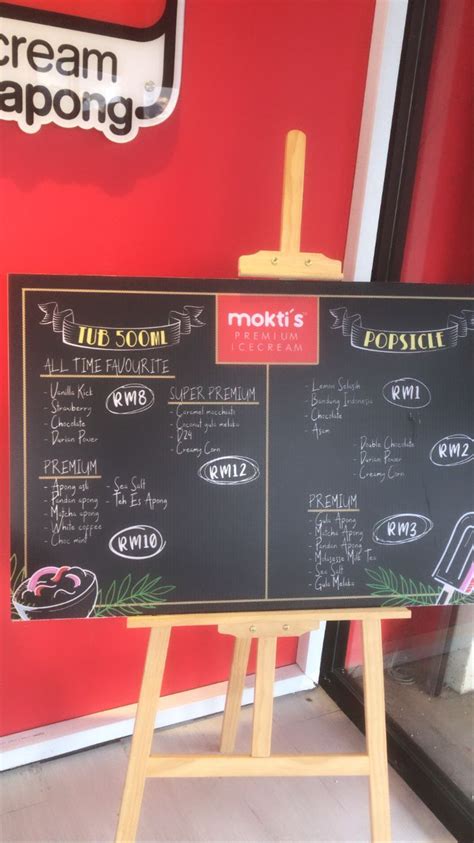 cream
apong
mokti's
PREMIUM
ICECREAM
TUB 500ML
ALL TIME FAVOURITE
- Vanilla Kick
- Strawberry
- Chocolate
- Durian Power
RM8
PREMIUM
- Apong asli
- Pandan apong
- Matcha apong
- White coffee
- Choc mint
- Sea Salt
- Teh Es Apong
RM10
SUPER PREMIUM
- Caramel macchiato
- Coconut gula melaka
- D24
- Creamy Corn
RM12
POPSICLE
- Lemon Selasih
- Bandung Indonesia
- Chocolate
- Asam
RM1
- Double Chocolate
- Durian Power
- Creamy Corn
RM2
PREMIUM
- Gula Apong
- Matcha Apong
- Pandan Apong
- Milk Tea
- Sea Salt
- Gula Melaka
RM3